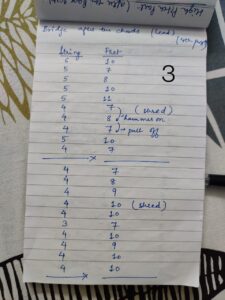 Bridge after the chords (lead)
String Fret
3
6 10
5 7
5 8
5 10
5 11
4 7 (shred)
4 8 hammer on
4 7 → pull off
5 10
4 7
x
4 7
4 8
4 9
4 10 (shred)
4 10
3 7
4 10
4 9
4 10
4 10
x